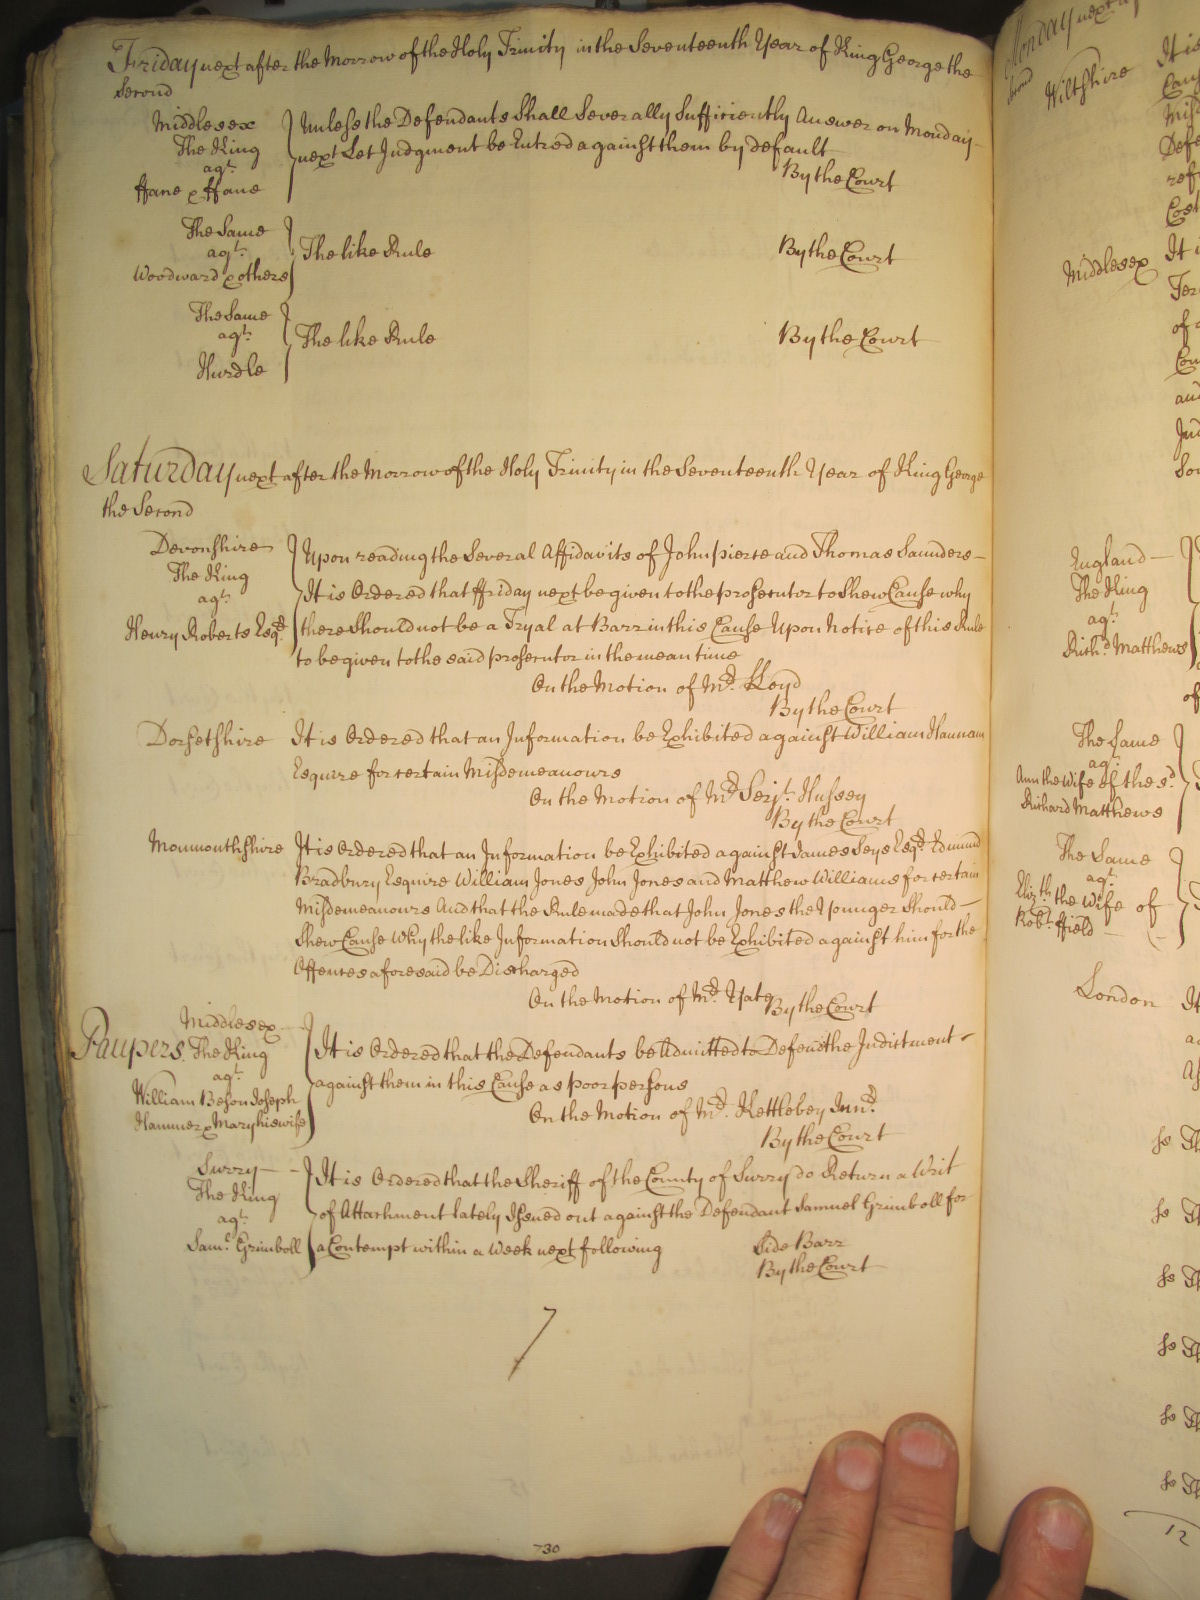 Friday next after the Morrow of the Holy Trinity in the Seventeenth Year of King George the
Second
Middlesex
The King
agt.
ffane & ffane
Unless the Defendants Shall Severally Sufficiently Answer on Monday
next Let Judgment be Entred against them by default
By the Court
The Same
agt.
Woodward & others
The like Rule
By the Court
The Same
agt.
Hurdle
The like Rule
By the Court
Saturday next after the Morrow of the Holy Trinity in the Seventeenth Year of King George
the Second
Devonshire
The King
agt.
Henry Roberts Esqr.
Upon reading the Several Affidavits of John pierce and Thomas Saunders
It is Ordered that ffriday next be given to the prosecutor to Shew Cause why
there Should not be a Tryal at Barr in this Cause Upon Notice of this Rule
to be given to the said prosecutor in the mean time
On the Motion of Mr. Lloyd
By the Court
Dorsetshire
It is Ordered that an Information be Exhibited against William Hannam
Esquire for certain Misdemeanours
On the Motion of Mr. Serjt. Hussey
By the Court
Monmouthshire
It is Ordered that an Information be Exhibited against James Seys Esqr. Edmund
Bradbury Esquire William Jones John Jones and Matthew Williams for certain
Misdemeanours And that the Rule made that John Jones the Younger Should
Shew Cause Why the like Information Should not be Exhibited against him for the
Offences aforesaid be Discharged
On the Motion of Mr. Yate
By the Court
Middlesex
Paupers The King
agt.
William Beson Joseph
Hammer & Mary his wife
It is Ordered that the Defendants be Admitted to Defend the Indictment
against them in this Cause as poor persons
On the Motion of Mr. Kettlebey Junr.
By the Court
Surry
The King
agt.
Saml. Grimboll
It is Ordered that the Sheriff of the County of Surry do Return a Writ
of Attachment lately Issued out against the Defendant Samuel Grimboll for
a Contempt within a Week next following
Side Barr
By the Court
7
730
Monday next
Second
Wiltshire
It is
Middlesex
It i
of
England
The King
agt.
Richd. Matthews
of
The Same
agt.
Ann the wife of the sd.
Richard Matthews
The Same
agt.
Elizth. the Wife of
Robt. ffield
London
It
12